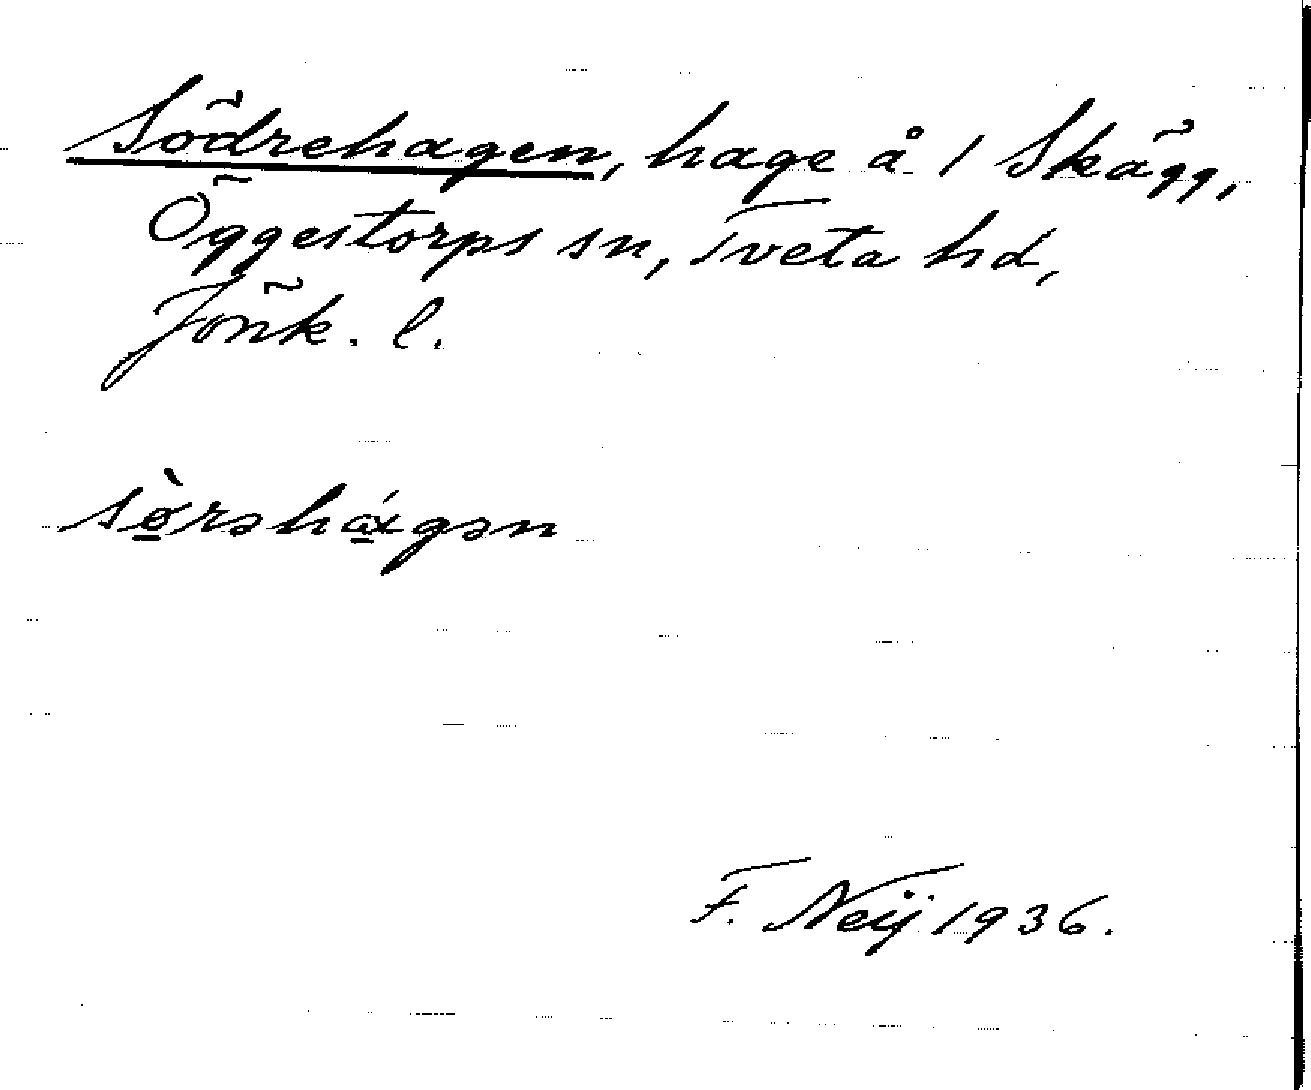 Södrehagen, hage å 1 Skägg,
Öggestorps sn, Tveta hd,
Jönk. l.
sø̀rəhágən
F. Neij 1936.